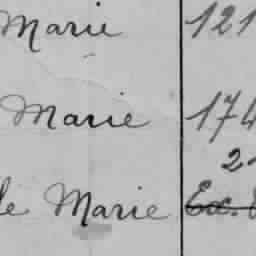 Marie 121
Marie 174
2
le Marie Ex.